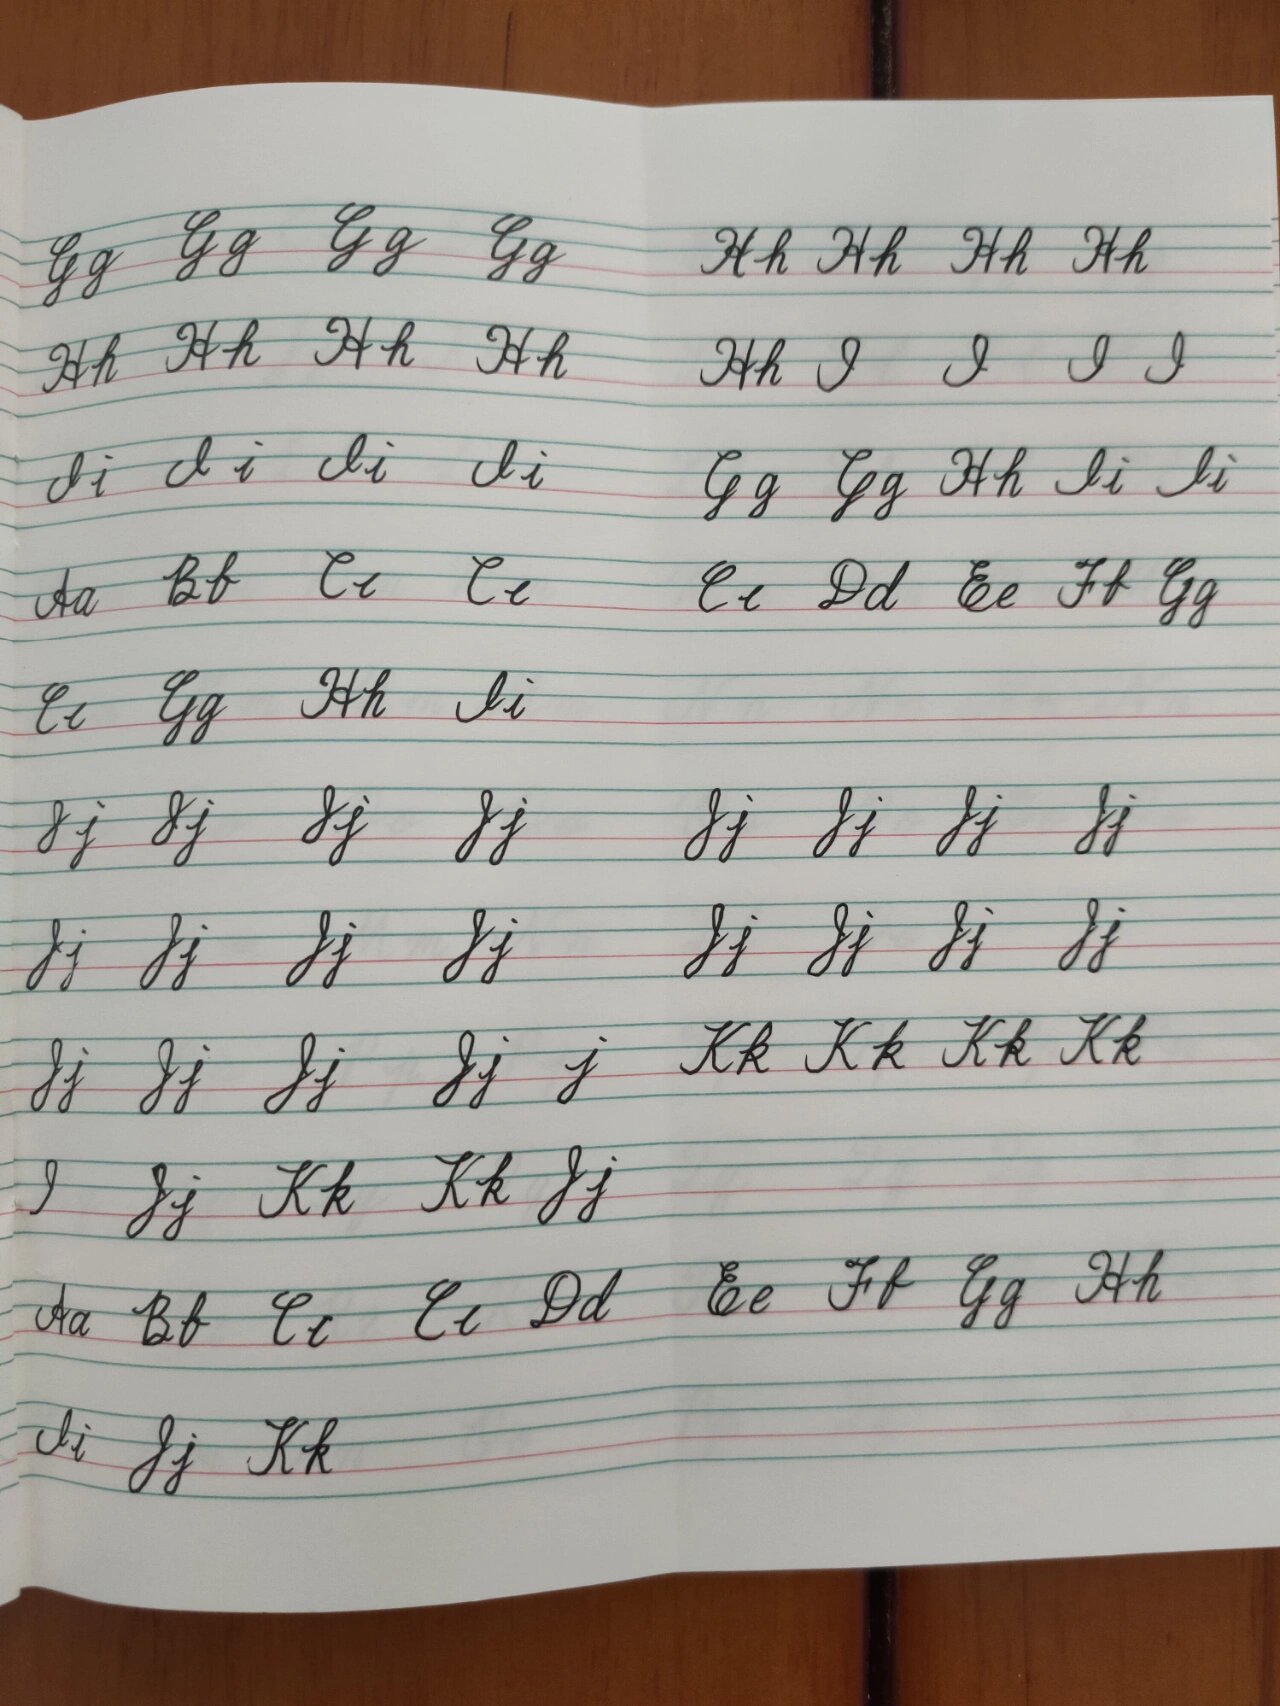 Gg Gg Gg Gg Hh Hh Hh Hh
Hh Hh Hh Hh Hh I I I I
Ii Ii Ii Ii Gg Gg Hh Ii Ii
Aa Bb Cc Cc Cc Dd Ee Ff Gg
Cc Gg Hh Ii
Jj Jj Jj Jj Jj Jj Jj Jj
Jj Jj Jj Jj Jj Jj Jj Jj
Jj Jj Jj Jj j Kk Kk Kk Kk
I Jj Kk Kk Jj
Aa Bb Cc Cc Dd Ee Ff Gg Hh
Ii Jj Kk